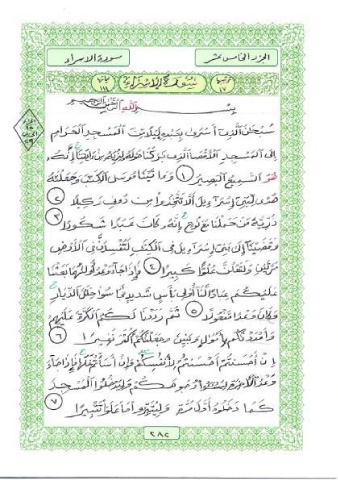 الجزء الخامس عشر
سورة الاسراء
سورة الإسراء
بسم الله الرحمن الرحيم
سبحان الذي اسرى بعبده ليلا من المسجد الحرام
الى المسجد الاقصا الذي بركنا حوله لنريه من ءايتنا انه
هو السميع البصير ١ وءاتينا موسى الكتب وجعلنه
هدى لبني اسرءيل الا تتخذوا من دوني وكيلا ٢
ذرية من حملنا مع نوح انه كان عبدا شكورا ٣
وقضينا الى بني اسرءيل في الكتب لتفسدن في الارض
مرتين ولتعلن علوا كبيرا ٤ فاذا جاء وعد اولىهما بعثنا
عليكم عبادا لنا أولي بأس شديد فجاسوا خلل الديار
وكان وعدا مفعولا ٥ ثم رددنا لكم الكرة عليهم
وامددنكم باموال وبنين وجعلنكم اكثر نفيرا ٦
ان احسنتم احسنتم لانفسكم وان اسأتم فلها فاذا جاء
وعد الاخرة ليسوءوا وجوهكم وليدخلوا المسجد
كما دخلوه اول مرة وليتبروا ما علوا تتبيرا ٧
٢٨٢